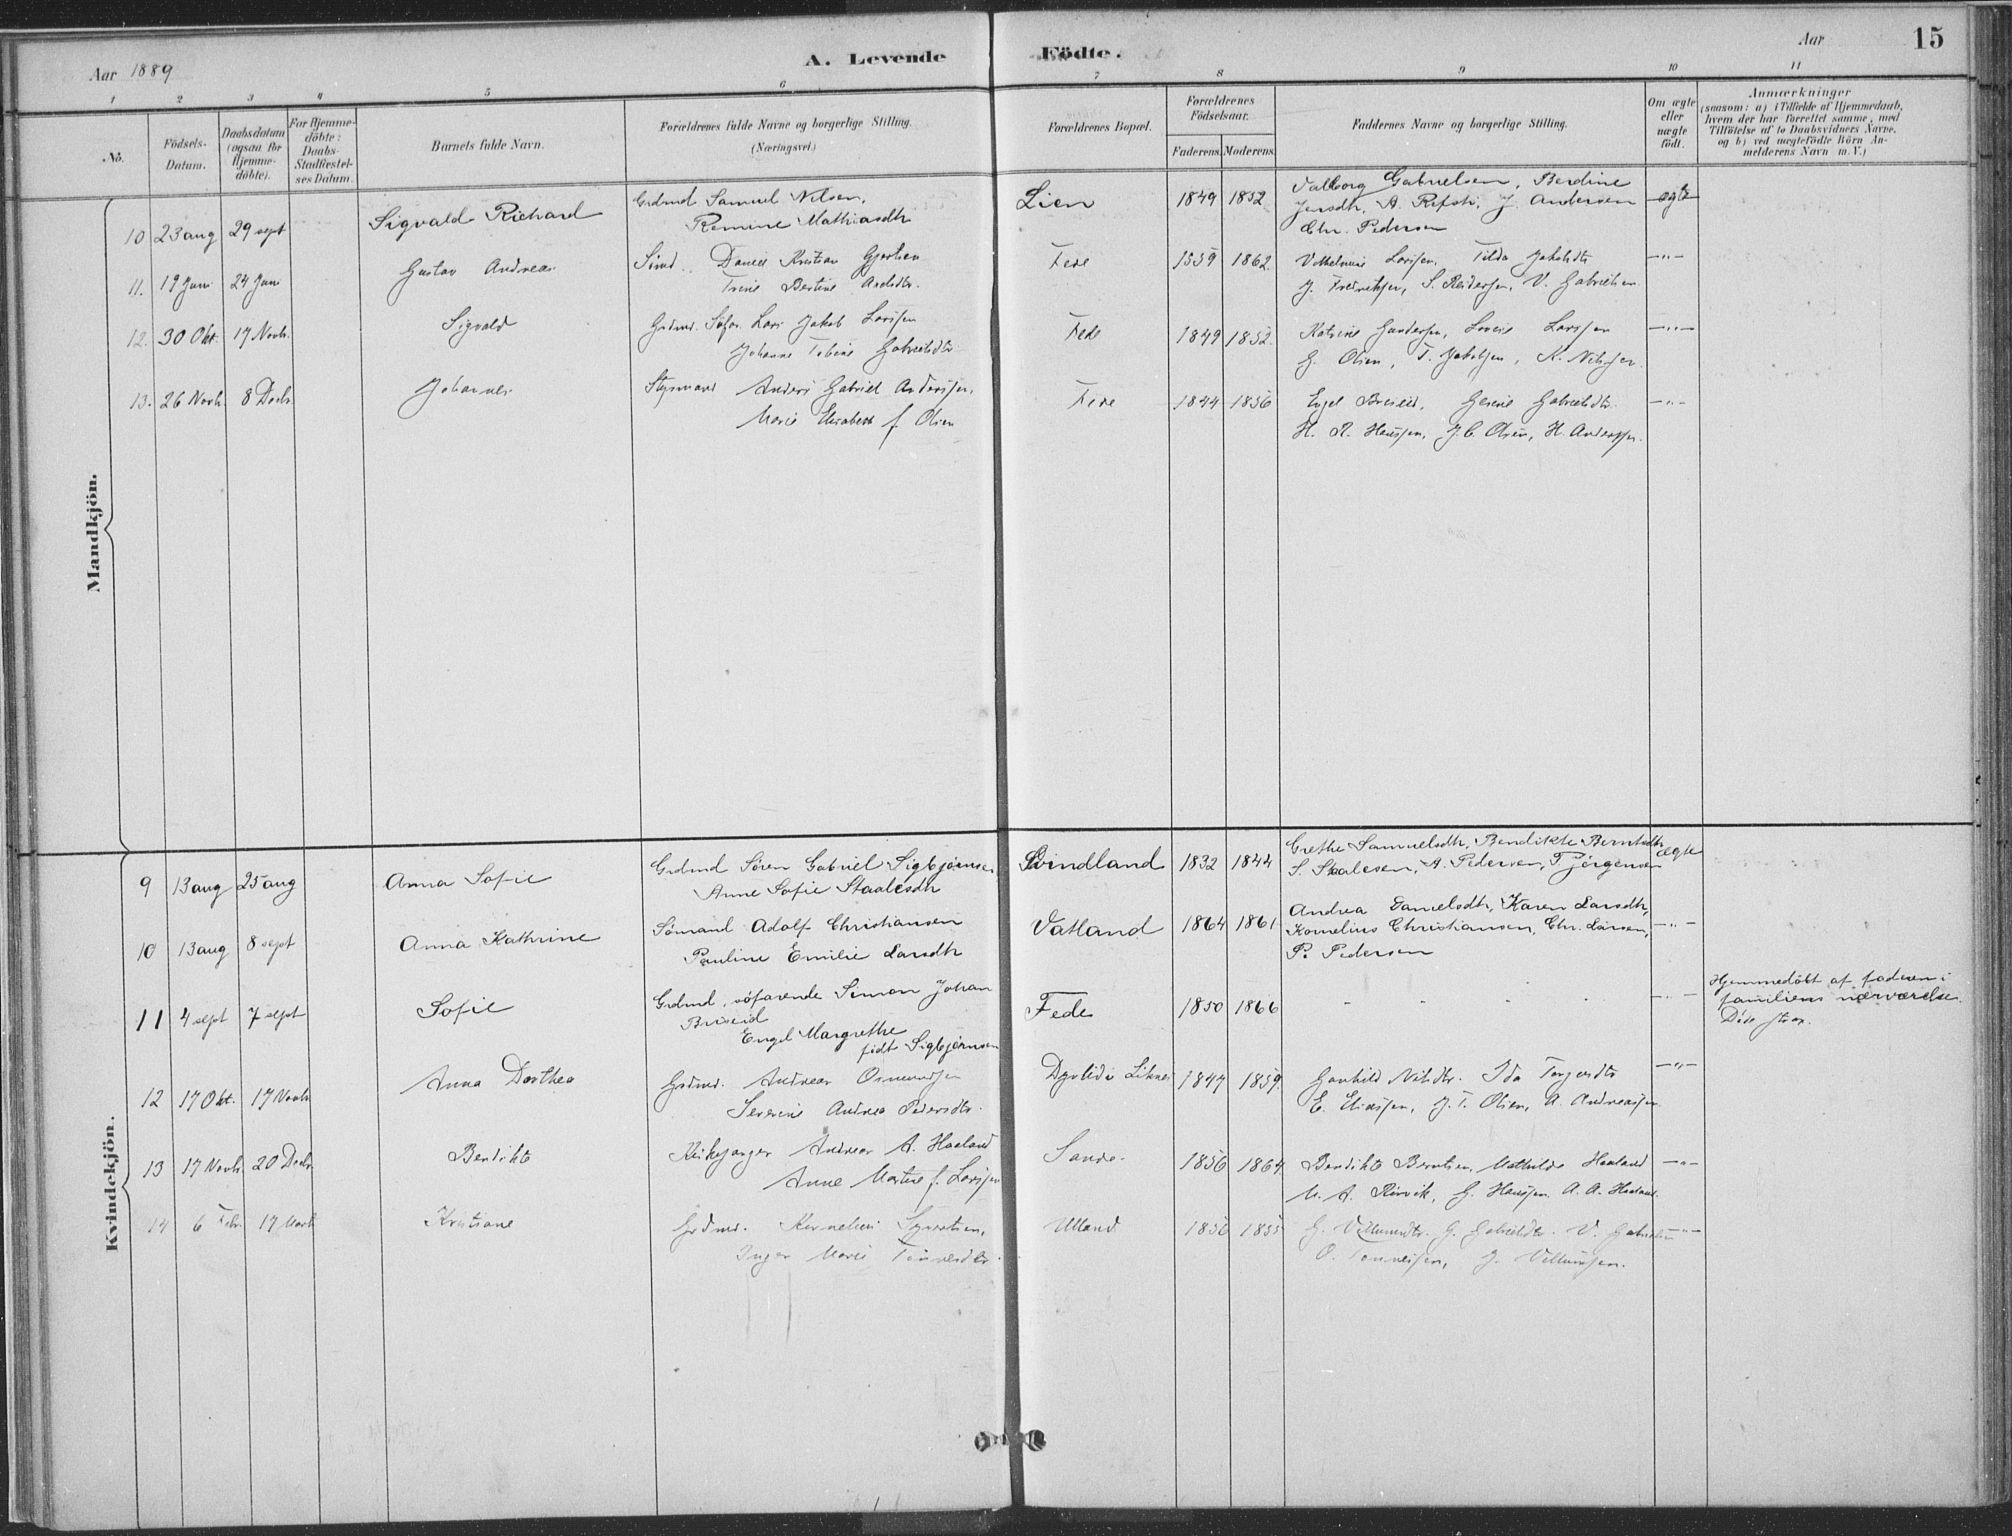 Aar 1889
A. Levende Födte.
Aar
15
1 2 3 4 5 6 7 8 9 10 11
No.
Födsels-Datum.
Daabsdatum (ogsaa for Hjemmedöbte).
For Hjemmedöbte: Daabs-Stadfæstelses Datum.
Barnets fulde Navn.
Forældrenes fulde Navne og borgerlige Stilling. (Næringsvei.)
Forældrenes Bopæl.
Forældrenes Födselsaar.
Faderens. Moderens.
Faddernes Navne og borgerlige Stilling.
Om ægte eller uægte födt.
Anmærkninger
(saasom: a) i Tilfælde af Hjemmedaab,
hvem der har forrettet samme, med
Tilföielse af to Daabsvidners Navne.
og b) ved uægtefödte Börn An-
melderens Navn m. V.)
Mandkjön.
10 23 aug 29 sept Sigvald Richard Grdmd Samuel Nilsen, Lien 1849 1852 Valborg Gabrielsen, Berdine ægte
Remine Mathiasdtr Jensdtr, A. Refsti, J. Andersen
Chr. Pedersen
11. 19 Juni 24 Juni Gustav Andreas Sømd. Daniel Kristian Gjertsen Fede 1859 1862. Vilhelmine Larssen, Tilda Jakobdtr —"—
Trine Bertine Axelsdtr. J. Fredriksen, S. Reidersen, V. Gabrielsen
12. 30 Okt. 17 Novb. Sigvald Grdmd. Søfar. Lars Jakob Larssen Fede 1849 1852. Katrine Gundersen, Lovise Larssen —"—
Johanne Tobine Gabrielsdtr G. Olsen, T. Jakobsen, K. Nilssen.
13. 26 Novb. 8 Decb. Johannes Styrmand Anders Gabriel Anderssen, Fede 1844 1856 Engel Briseid, Gesine Gabrielsdtr. —"—
Marie Elisabeth f. Olsen H. R. Hanssen, J. C. Olsen, H. Anderssen.
Kvindekjön.
9 13 aug 25 aug Anna Sofie Grdmd Søren Gabriel Sigbjørnsen Svindland 1832 1844 Grethe Samuelsdtr, Bendikte Berntsdtr ægte
Anne Sofie Staalesdtr S. Staalesen, A. Pedersen, T. Jørgensen
10 13 aug 8 sept Anna Kathrine Sømand Adolf Christiansen Vatland 1864 1861 Andrea Danielsdtr, Karen Larsdtr, —"—
Pauline Emilie Larsdtr Kornelius Christiansen, Chr. Larsen,
P. Pedersen
11 4 sept 7 sept Sofie Grdmd, søfarende Simon Johan Fede 1850 1866 " " " —"— Hjemmedöbt af faderen i
Briseid familiens nærværelse.
Engel Margrethe Døde strax.
født Sigbjørnsen
12 17 Okt. 17 Novb Anna Dorthea Grdmd. Andreas Osmundsen Dyrlid i Liknes 1847 1859. Gunhild Nilsdtr. Ida Torgersdtr —"—
Severine Andrea Pedersdtr. E. Eliassen, J. T. Olsen, A. Andreassen
13 17 Novb. 20 Decb. Bendikte Kirkesanger Andreas A. Haaland Sande. 1856 1864 Bendikte Berntsen, Mathilde Haaland —"—
Anne Martine f. Larssen M. A. Rørvik, G. Hanssen, A. A. Haaland.
14 6 Febr. 17 Marts Kristiane Grdmd. Kornelius Syvertsen, Ulland 1856 1855 G. Villumsdtr. G. Gabrielsdtr. V. Gabrielsen —"—
Inger Marie Tønnesdtr. O. Tønnessen, J. Villumsen.